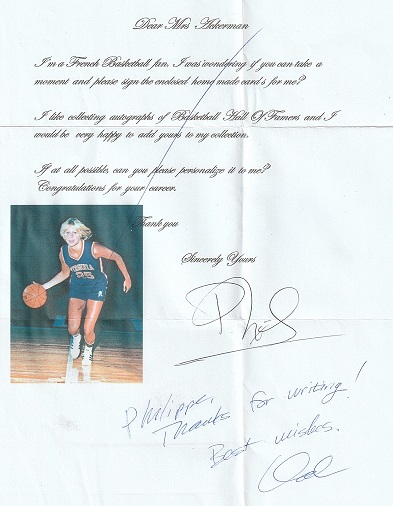 Dear Mrs Ackerman
I'm a French Basketball fan. I was wondering if you can take a
moment and please sign the enclosed home made card's for me?
I like collecting autographs of Basketball Hall Of Famers and I
would be very happy to add yours to my collection.
If at all possible, can you please personalize it to me?
Congratulations for your career.
Thank you
Sincerely Yours
VIRGINIA
25
Phil
Philippe,
Thanks for writing!
Best wishes.